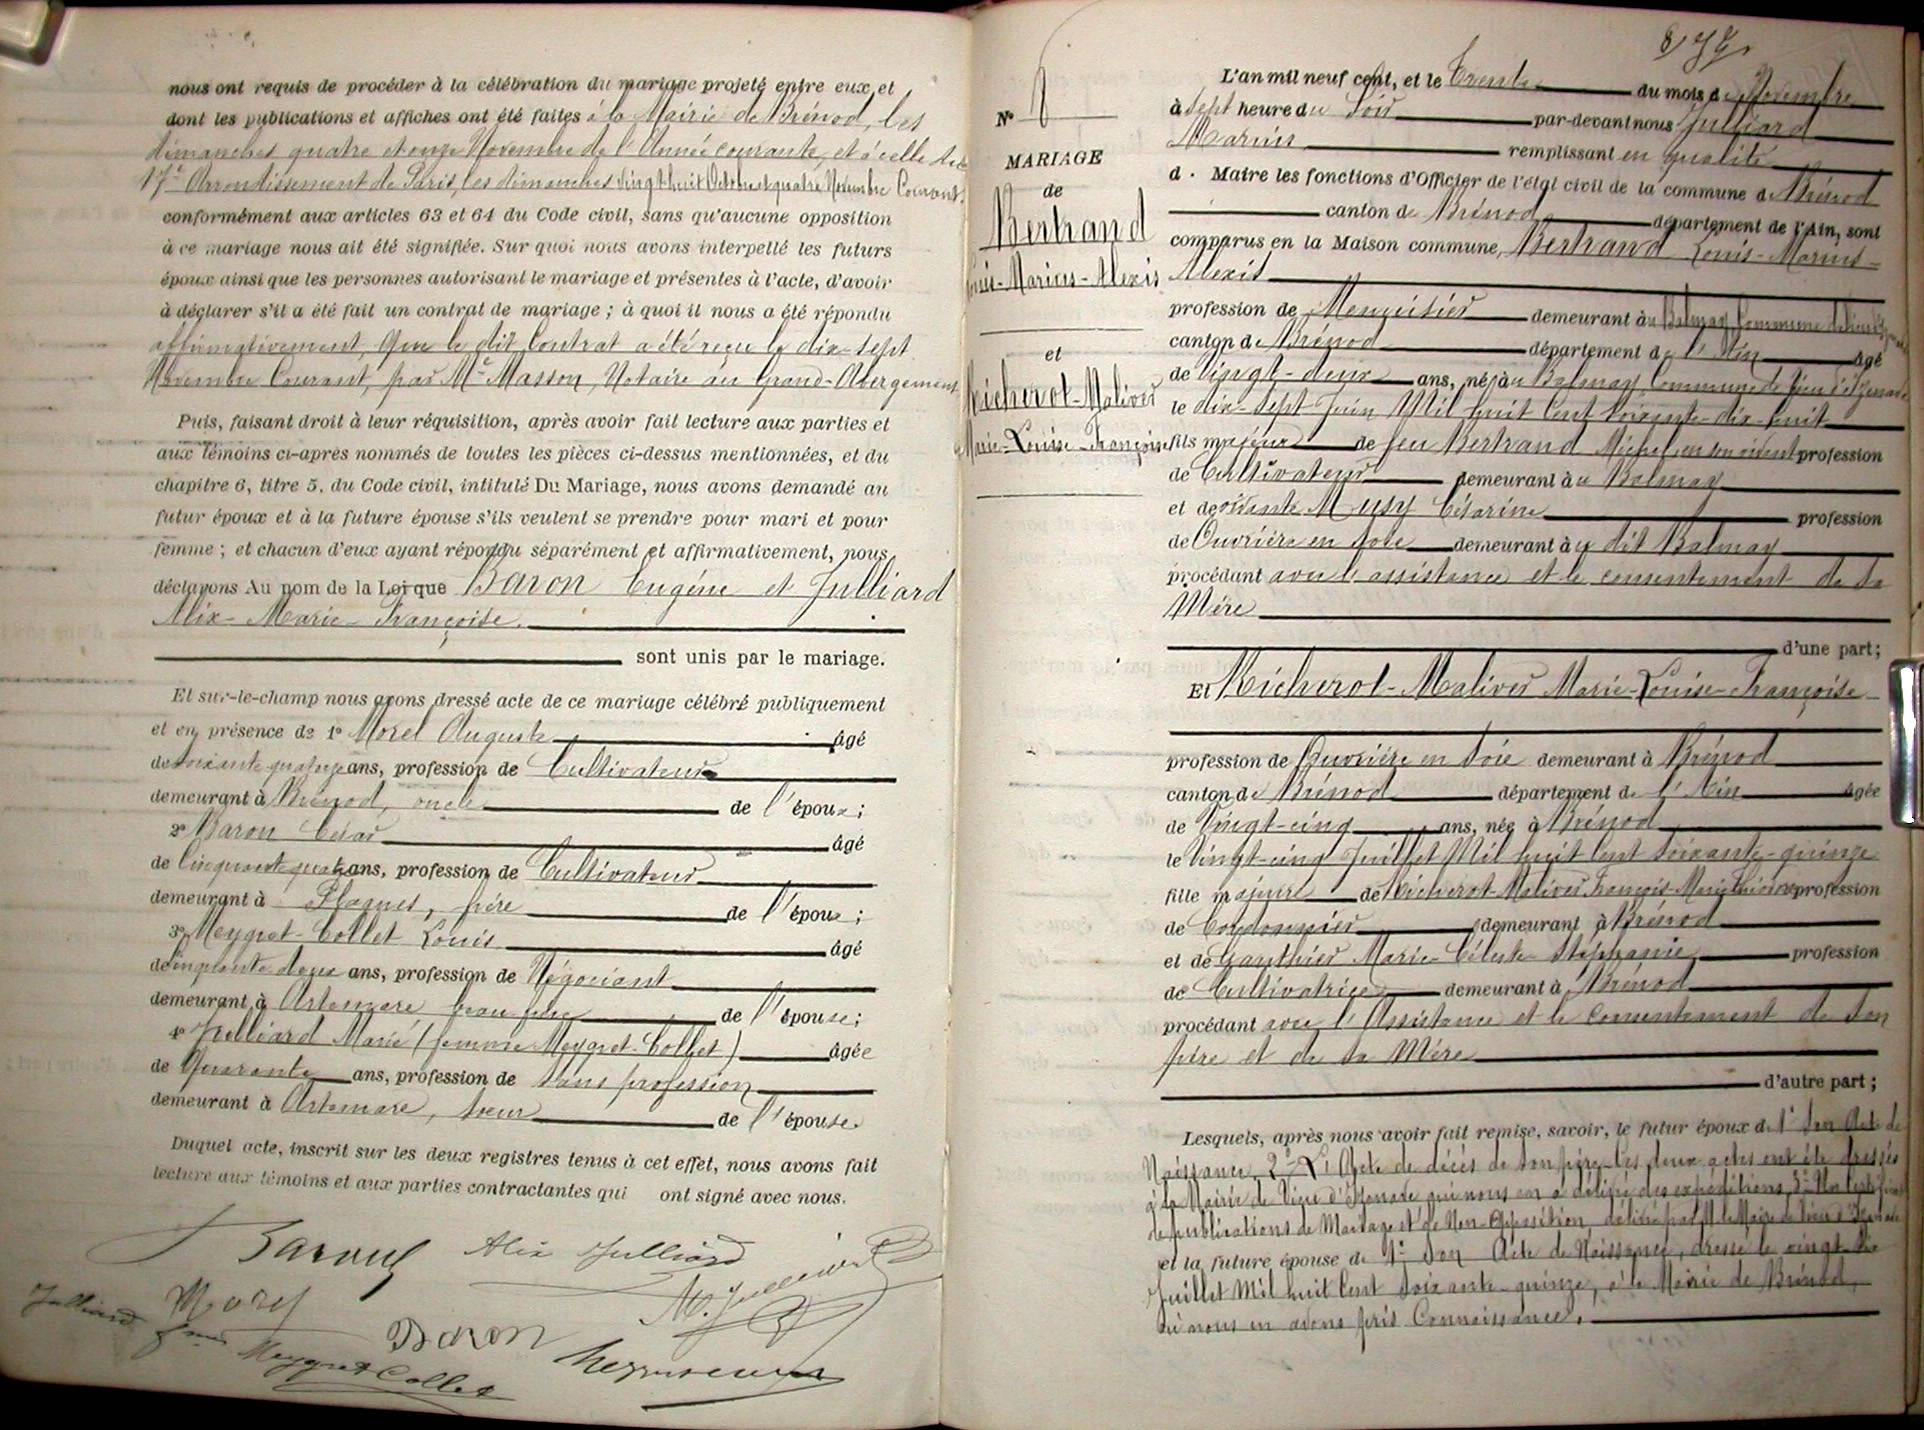 nous ont requis de procéder à la célébration du mariage projeté entre eux, et
dont les publications et affiches ont été faites à la Mairie de Brénod, les
dimanches quatre et onze Novembre de l'Année courante, et à celle du
17e Arrondissement de Paris, les dimanches vingt huit Octobre et quatre Novembre Courant.
conformément aux articles 63 et 64 du Code civil, sans qu'aucune opposition
à ce mariage nous ait été signifiée. Sur quoi nous avons interpellé les futurs
époux ainsi que les personnes autorisant le mariage et présentes à l'acte, d'avoir
à déclarer s'il a été fait un contrat de mariage ; à quoi il nous a été répondu
affirmativement, Que le dit Contrat a été reçu le dix-sept
Novembre Courant, par Me Masson, Notaire au Grand-Abergement
Puis, faisant droit à leur réquisition, après avoir fait lecture aux parties et
aux témoins ci-après nommés de toutes les pièces ci-dessus mentionnées, et du
chapitre 6, titre 5, du Code civil, intitulé Du Mariage, nous avons demandé au
futur époux et à la future épouse s'ils veulent se prendre pour mari et pour
femme ; et chacun d'eux ayant répondu séparément et affirmativement, nous
déclarons Au nom de la Loi que Baron Eugène et Julliard
Alix-Marie-Françoise.
sont unis par le mariage.
Et sur-le-champ nous avons dressé acte de ce mariage célébré publiquement
et en présence de 1° Morel Auguste âgé
de soixante quatorze ans, profession de Cultivateur
demeurant à Brénod, oncle de l'épouse ;
2° Baron César âgé
de Cinquante quatre ans, profession de Cultivateur
demeurant à Plagnes, père de l'époux ;
3° Meygret-Collet Louis âgé
de cinquante deux ans, profession de Négociant
demeurant à Artemare beau frère de l'épouse ;
4° Julliard Marie (femme Meygret-Collet) âgée
de Quarante ans, profession de sans profession
demeurant à Artemare, sœur de l'épouse.
Duquel acte, inscrit sur les deux registres tenus à cet effet, nous avons fait
lecture aux témoins et aux parties contractantes qui ont signé avec nous.
Baron Alix Julliard
Morel M. Julliard
Julliard fme Meygret Collet
Baron
N° 8
MARIAGE
de
Bertrand
Louis-Marius-Alexis
et
Richerot-Malivер
Marie-Louise-Françoise
L'an mil neuf cent, et le Trente du mois de Novembre
à sept heure du Soir par-devant nous Julliard
Marius remplissant en qualité
d. Maire les fonctions d'Officier de l'état civil de la commune de Brénod
canton de Brénod département de l'Ain, sont
comparus en la Maison commune, Bertrand Louis-Marius-
Alexis
profession de Menuisier demeurant à au Balmay, Commune de Vieu d'Izenave
canton de Brénod département de l'Ain âgé
de Vingt-deux ans, né à au Balmay Commune de Vieu d'Izenave
le dix-sept Juin Mil huit Cent soixante-dix-huit
fils majeur de feu Bertrand Michel, en son vivant profession
de Cultivateur demeurant à au Balmay
et de vivante Musy Césarine profession
de Ouvrière en soie demeurant à au dit Balmay
procédant avec l'assistance et le consentement de sa
Mère
d'une part ;
Et Richerot-Maliver Marie-Louise-Françoise
profession de Ouvrière en soie demeurant à Brénod
canton de Brénod département de l'Ain âgée
de Vingt-cinq ans, née à Brénod
le Vingt-cinq Juillet Mil huit Cent soixante-quinze
fille majeure de Richerot-Maliver François-Marie profession
de Cordonnier demeurant à Brénod
et de Gauthier Marie-Céleste-Stéphanie profession
de Cultivatrice demeurant à Brénod
procédant avec l'Assistance et le Consentement de son
père et de sa Mère
d'autre part ;
Lesquels, après nous avoir fait remise, savoir, le futur époux de 1° Son Acte de
Naissance, 2° L'Acte de décès de son père. Les deux actes ont été dressés
à la Mairie de Vieu d'Izenave qui nous en a délivré des expéditions, 3° Un Certificat
de publications de Mariage et de Non-Opposition, délivré par M. le Maire de Vieu d'Izenave
et la future épouse de 1° Son Acte de Naissance, dressé le vingt-six
Juillet Mil huit Cent soixante-quinze, à la Mairie de Brénod,
où nous en avons pris Connaissance.